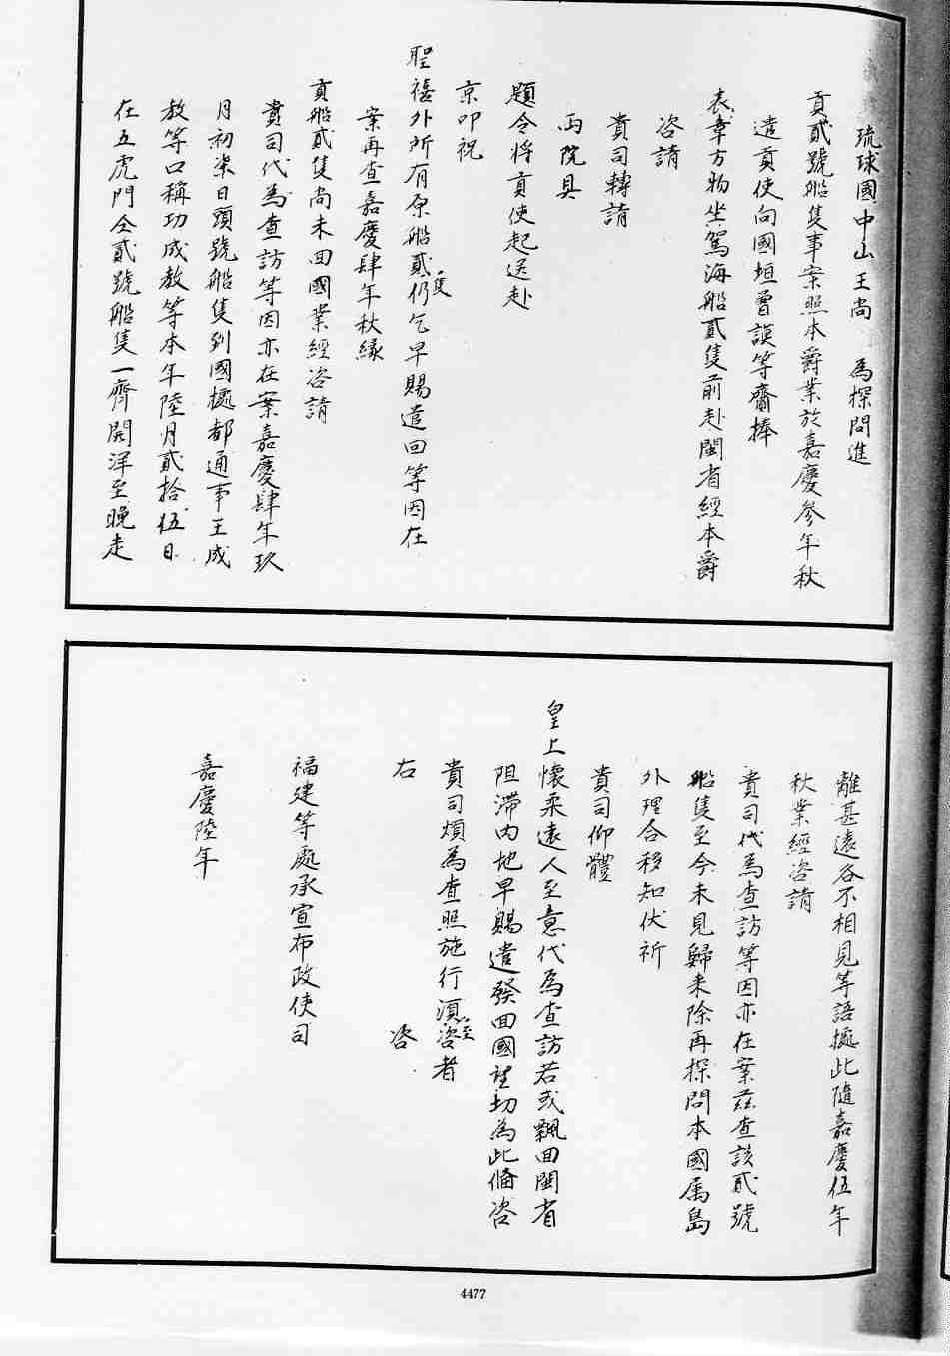 琉球國中山王尚　為探問進
貢貳號船隻事案照本爵業於嘉慶參年秋
遣貢使向國垣曾謨等齎捧
表章方物坐駕海船貳隻前赴閩省經本爵
咨請
貴司轉請
両院具
題令將貢使起送赴
京叩祝
聖禧外所有原船貳隻仍乞早賜遣回等因在
案再查嘉慶肆年秋緣
貢船貳隻尚未回國業經咨請
貴司代為查訪等因亦在案嘉慶肆年玖
月初柒日頭號船隻到國據都通事王成
教等口稱功成教等本年陸月貳拾伍日
在五虎門仝貳號船隻一齊開洋至晚走
離甚遠各不相見等語據此隨嘉慶伍年
秋業經咨請
貴司代為查訪等因亦在案茲查該貳號
船隻至今未見歸來除再探問本國属島
外理合移知伏祈
貴司仰體
皇上懷柔遠人至意代為查訪若或飄回閩省
阻滯内地早賜遣發回國望切為此備咨
貴司煩為查照施行須至咨者
右　　　　　咨
福建等處承宣布政使司
嘉慶陸年
4477